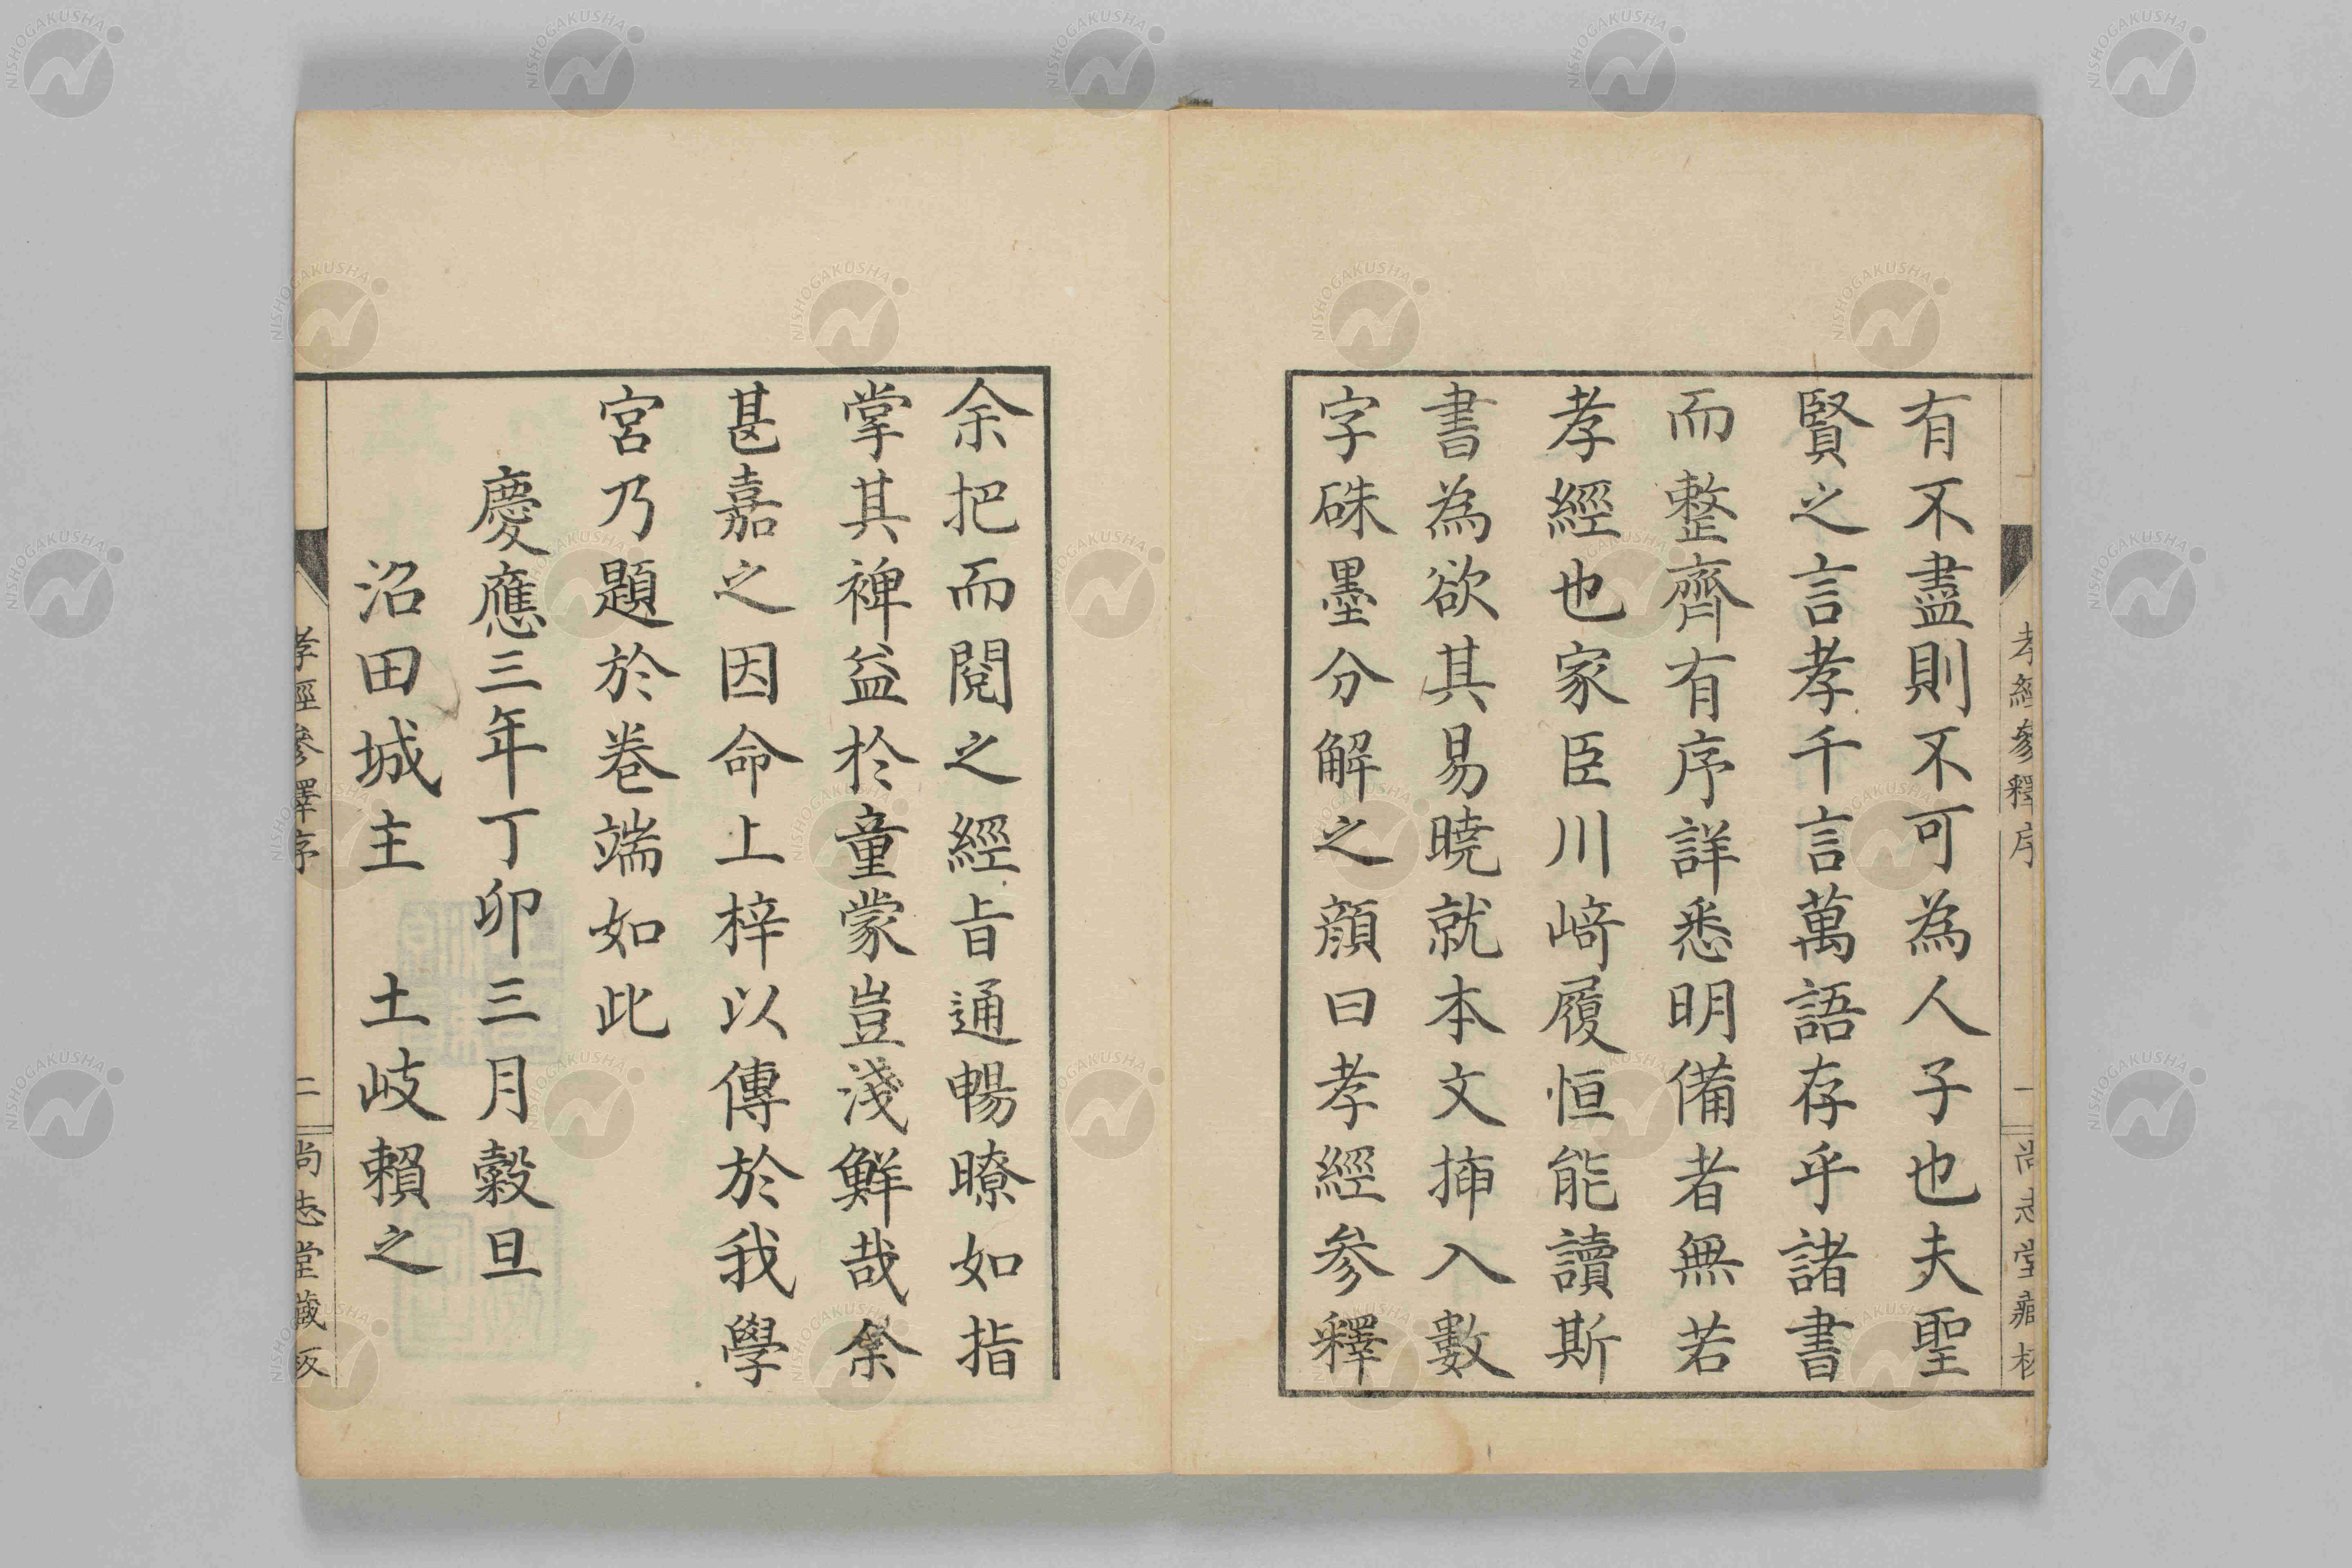 有不盡則不可為人子也夫聖
賢之言孝千言萬語存乎諸書
而整齊有序詳悉明備者無若
孝經也家臣川﨑履恒能讀斯
書為欲其易曉就本文揷入數
字硃墨分解之顔曰孝經参釋
余把而閲之經㫖通暢暸如指
掌其裨益於童蒙豈淺鮮哉余
甚嘉之因命上梓以傳於我學
宮乃題於卷端如此
慶應三年丁卯三月穀旦
沼田城主 土岐賴之
孝經參釋序
一
尚志堂藏板
孝經參釋序
二
尚志堂藏板
NISHOGAKUSHA